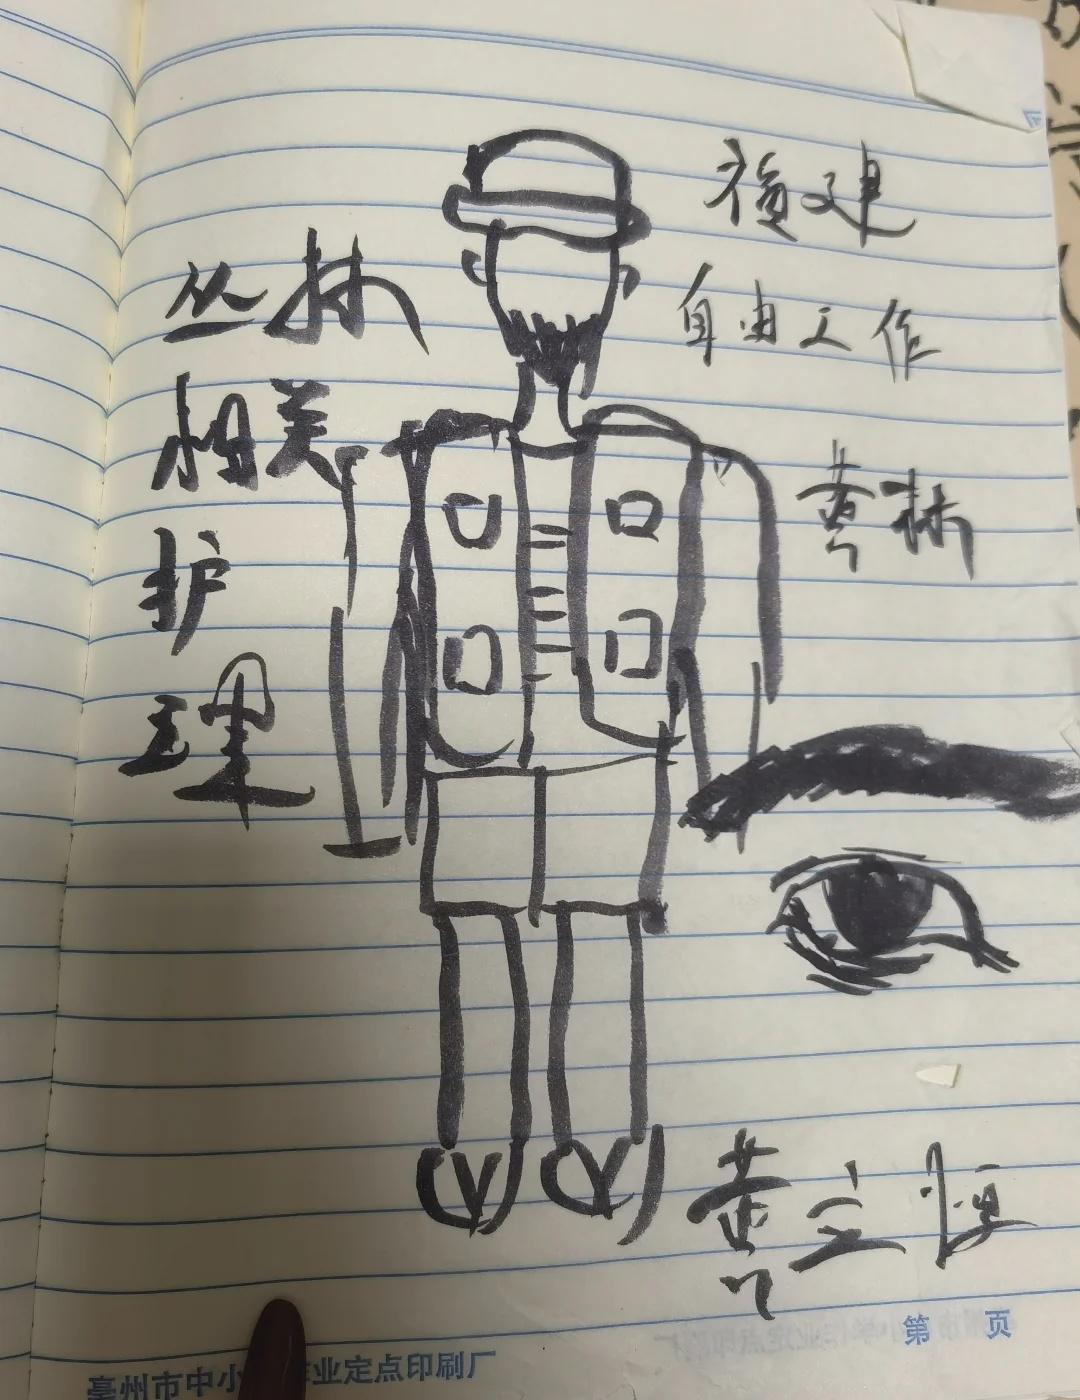 福建
自由工作
丛林
相关
护
理
黄林
黄立恒
第 页
亳州市中小 作业定点印刷厂